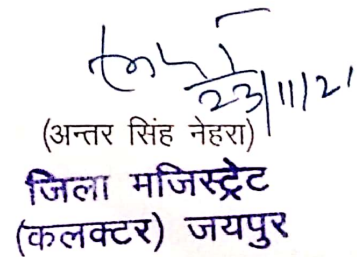 23/11/21
(अन्तर सिंह नेहरा)
जिला मजिस्ट्रेट
(कलक्टर) जयपुर